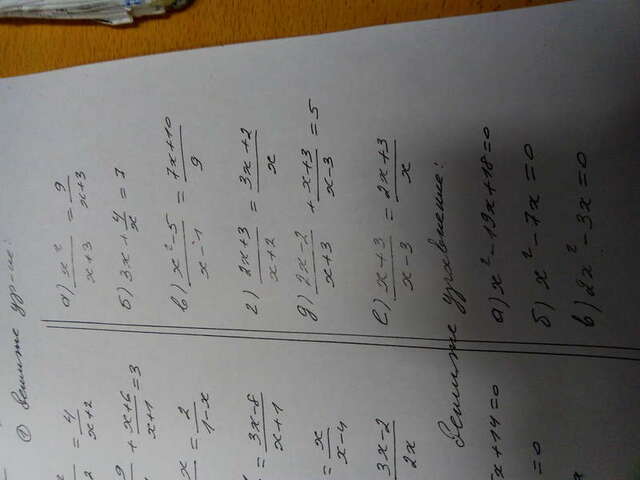 ① Решите ур-ие:
= 4/(x+2)
+ (x+6)/(x+1) = 3
= 2/(1-x)
= (3x-8)/(x+1)
= x/(x-4)
(3x-2)/2x
x+14=0
=0
а) x²/(x+3) = 9/(x+3)
б) 3x + 4/x = 7
в) (x²-5)/(x-1) = (7x+10)/9
г) (2x+3)/(x+2) = (3x+2)/x
д) (2x-2)/(x+3) + (x+3)/(x-3) = 5
е) (x+3)/(x-3) = (2x+3)/x
Решите уравнение:
а) x²-19x+18=0
б) x²-7x=0
в) 2x²-3x=0